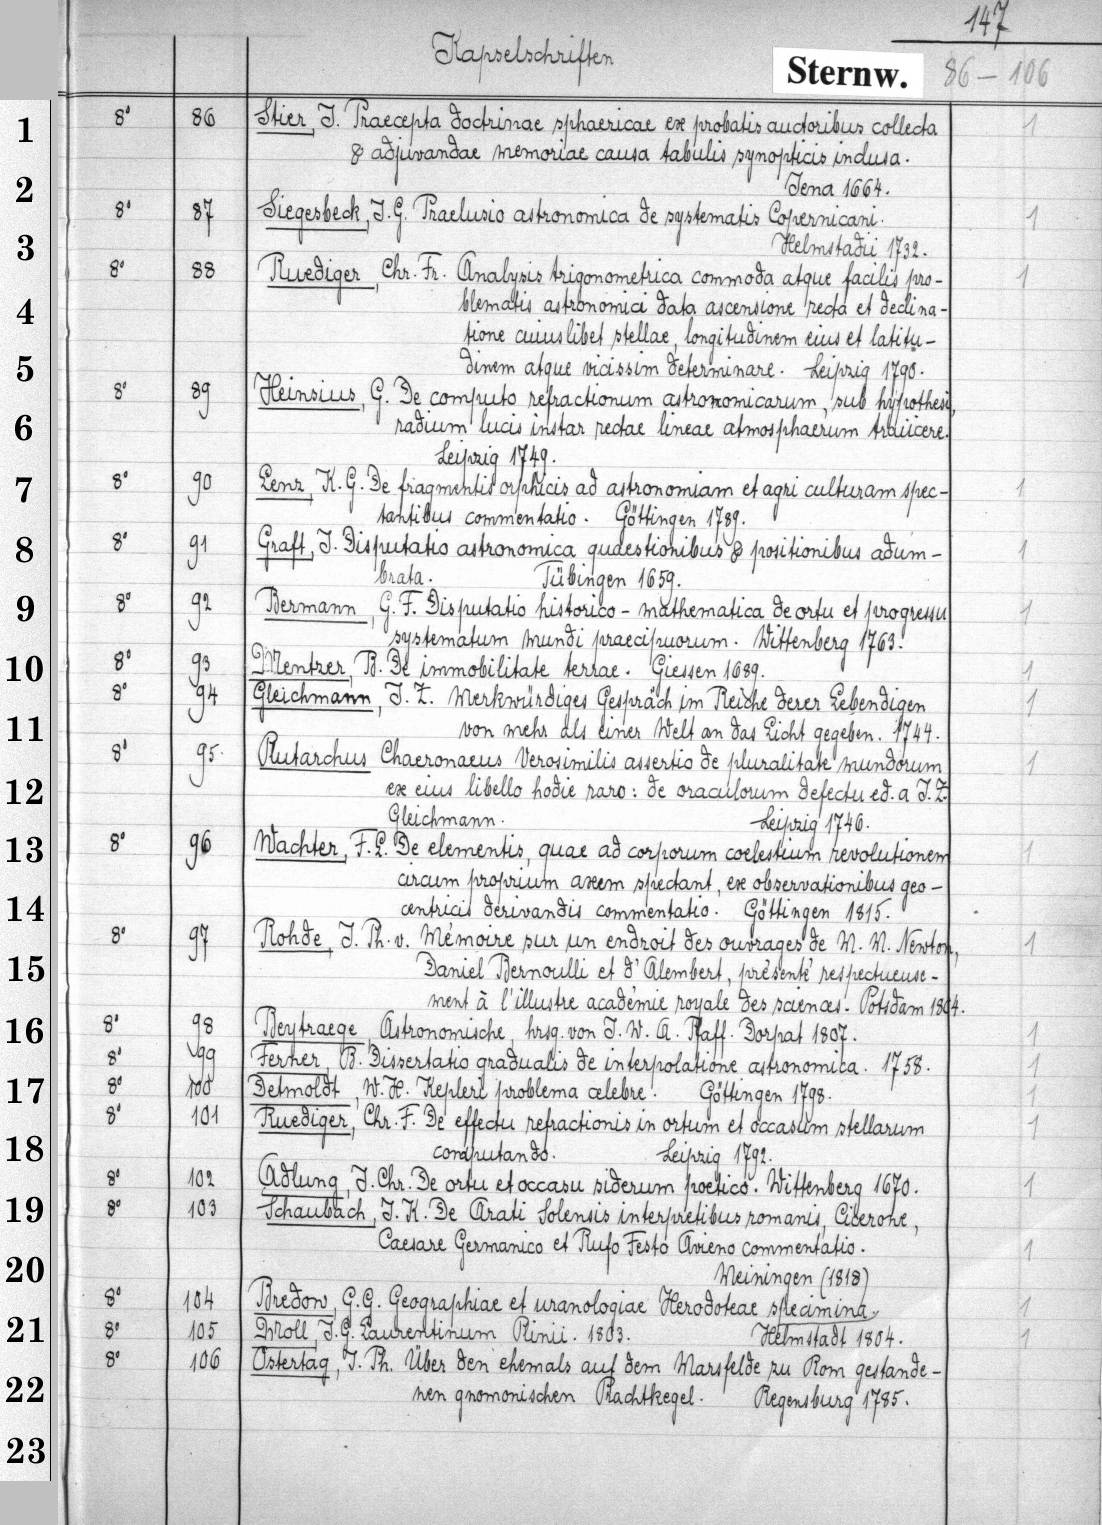 147
Kapselschriften
Sternw. 86 – 106
1
8° 86 Stier, J. Praecepta doctrinae sphaericae ex probatis auctoribus collecta 1
& adjuvandae memoriae causa tabulis synopticis inclusa.
2
Jena 1664.
8° 87 Siegesbeck, J. G. Praelusio astronomica de systematis Copernicani. 1
3
Helmstadii 1732.
8° 88 Ruediger, Chr. Fr. Analysis trigonometrica commoda atque facilis pro- 1
4
blematis astronomici data ascensione recta et declina-
tione cuiuslibet stellae, longitudinem eius et latitu-
5
dinem atque vicissim determinare. Leipzig 1790.
8° 89 Heinsius, G. De computo refractionum astronomicarum, sub hypothesi,
6
radium lucis instar rectae lineae atmosphaerum traiicere.
Leipzig 1749.
7
8° 90 Lenz, K. G. De fragmentis orphicis ad astronomiam et agri culturam spec- 1
tantibus commentatio. Göttingen 1789.
8
8° 91 Graft, J. Disputatio astronomica quaestionibus & positionibus adum- 1
brata. Tübingen 1659.
9
8° 92 Bermann, G. F. Disputatio historico - mathematica de ortu et progressu 1
systematum mundi praecipuorum. Wittenberg 1763.
10
8° 93 Mentzer, B. De immobilitate terrae. Giessen 1689. 1
8° 94 Gleichmann, J. Z. Merkwürdiges Gespräch im Reiche derer Lebendigen 1
11
von mehr als einer Welt an das Licht gegeben. 1744.
8° 95. Plutarchus Chaeronaeus Verosimilis assertio de pluralitate mundorum 1
12
ex eius libello hodie raro: de oraculorum defectu ed. a J. Z.
Gleichmann. Leipzig 1746.
13
8° 96 Wachter, F. L. De elementis, quae ad corporum coelestium revolutionem 1
circum proprium axem spectant, ex observationibus geo-
14
centricis derivandis commentatio. Göttingen 1815.
8° 97 Rohde, J. Ph. v. Mémoire sur un endroit des ouvrages de M. M. Newton, 1
15
Daniel Bernoulli et d'Alembert, présenté respectueuse-
ment à l'illustre académie royale des sciences. Potsdam 1804.
16
8° 98 Beytraege, Astronomische, hrsg. von J. W. A. Pfaff. Dorpat 1807. 1
8° 99 Ferner, B. Dissertatio gradualis de interpolatione astronomica. 1758. 1
17
8° 100 Detmoldt, W. H. Kepleri problema celebre. Göttingen 1798. 1
8° 101 Ruediger, Chr. F. De effectu refractionis in ortum et occasum stellarum 1
18
computando. Leipzig 1792.
8° 102 Adlung, J. Chr. De ortu et occasu siderum poetico. Wittenberg 1670. 1
19
8° 103 Schaubach, J. K. De Arati Solensis interpretibus romanis, Cicerone,
Caesare Germanico et Rufo Festo Avieno commentatio. 1
20
Meiningen (1818)
8° 104 Bredow, G. G. Geographiae et uranologiae Herodoteae specimina 1
21
8° 105 Moll, J. G. Laurentinum Plinii. 1803. Helmstadt 1804. 1
8° 106 Ostertag, J. Ph. Über den ehemals auf dem Marsfelde zu Rom gestande-
22
nen gnomonischen Prachtkegel. Regensburg 1785.
23